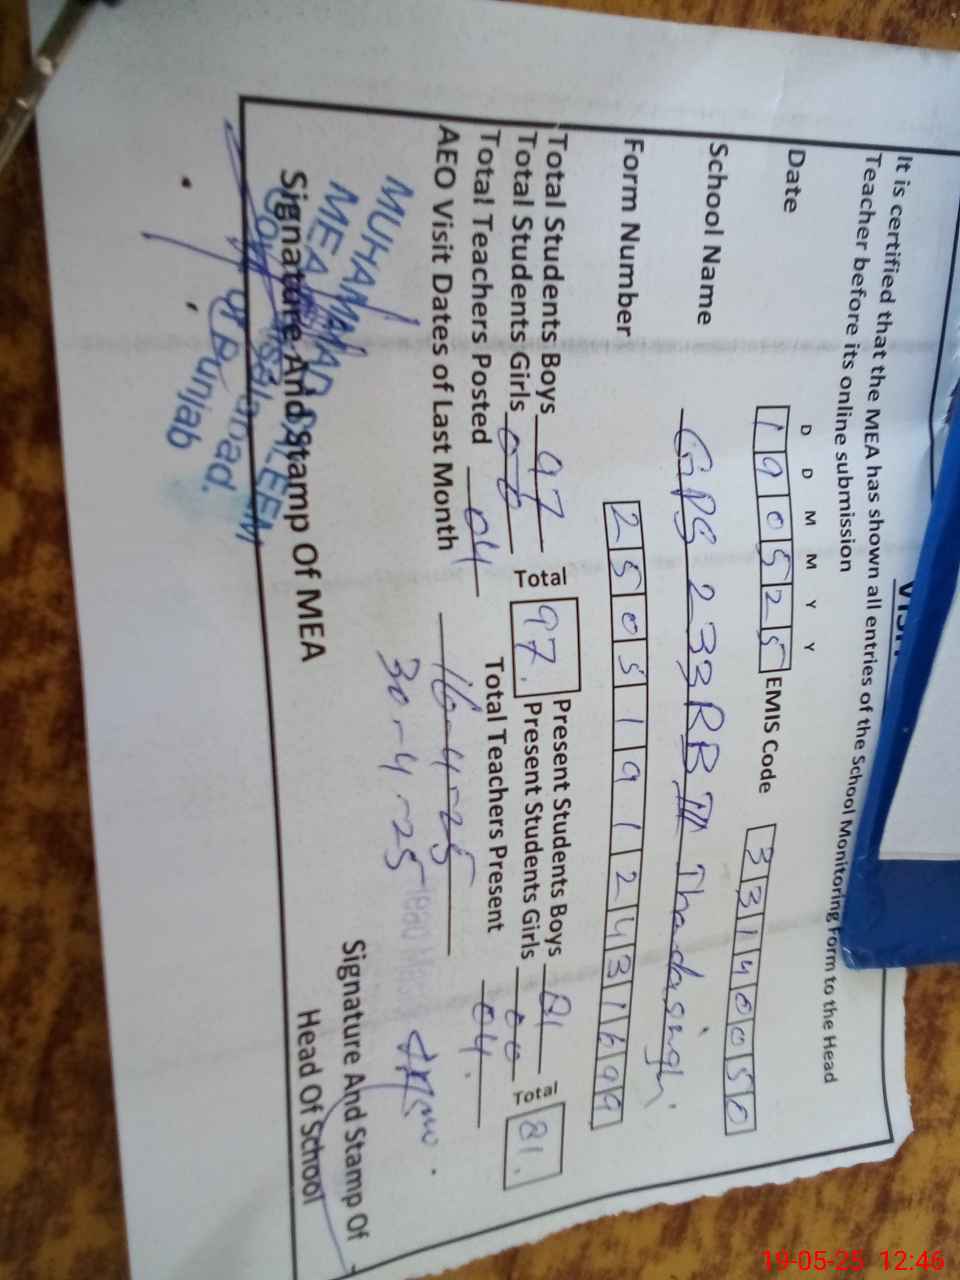 It is certified that the MEA has shown all entries of the School Monitoring Form to the Head
Teacher before its online submission
D D M M Y Y
Date 190525 EMIS Code 33140050
School Name GPS 233 RB II Thadasingh
Form Number 25051912431699
Total Students Boys 97 Present Students Boys 81
Total Students Girls 00 Total 97. Present Students Girls 00 Total 81.
Total Teachers Posted 04 Total Teachers Present 04.
AEO Visit Dates of Last Month 16-4-25
30-4-25
Signature And Stamp Of MEA
Signature And Stamp Of
Head Of School
MEA
Punjab
19-05-25 12:46